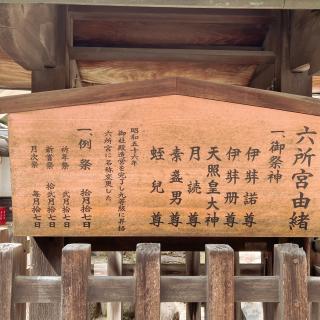 六所宮由緒
一、御祭神
伊弉諾尊
伊弉册尊
天照皇大神
月読尊
素盞男尊
蛭兒尊
昭和五十六年
御社殿造営を完了し九等級に昇格
六所宮に名称変更した。
一、例祭 拾月拾七日
祈年祭 弐月拾七日
新嘗祭 拾弐月拾七日
月次祭 毎月拾七日